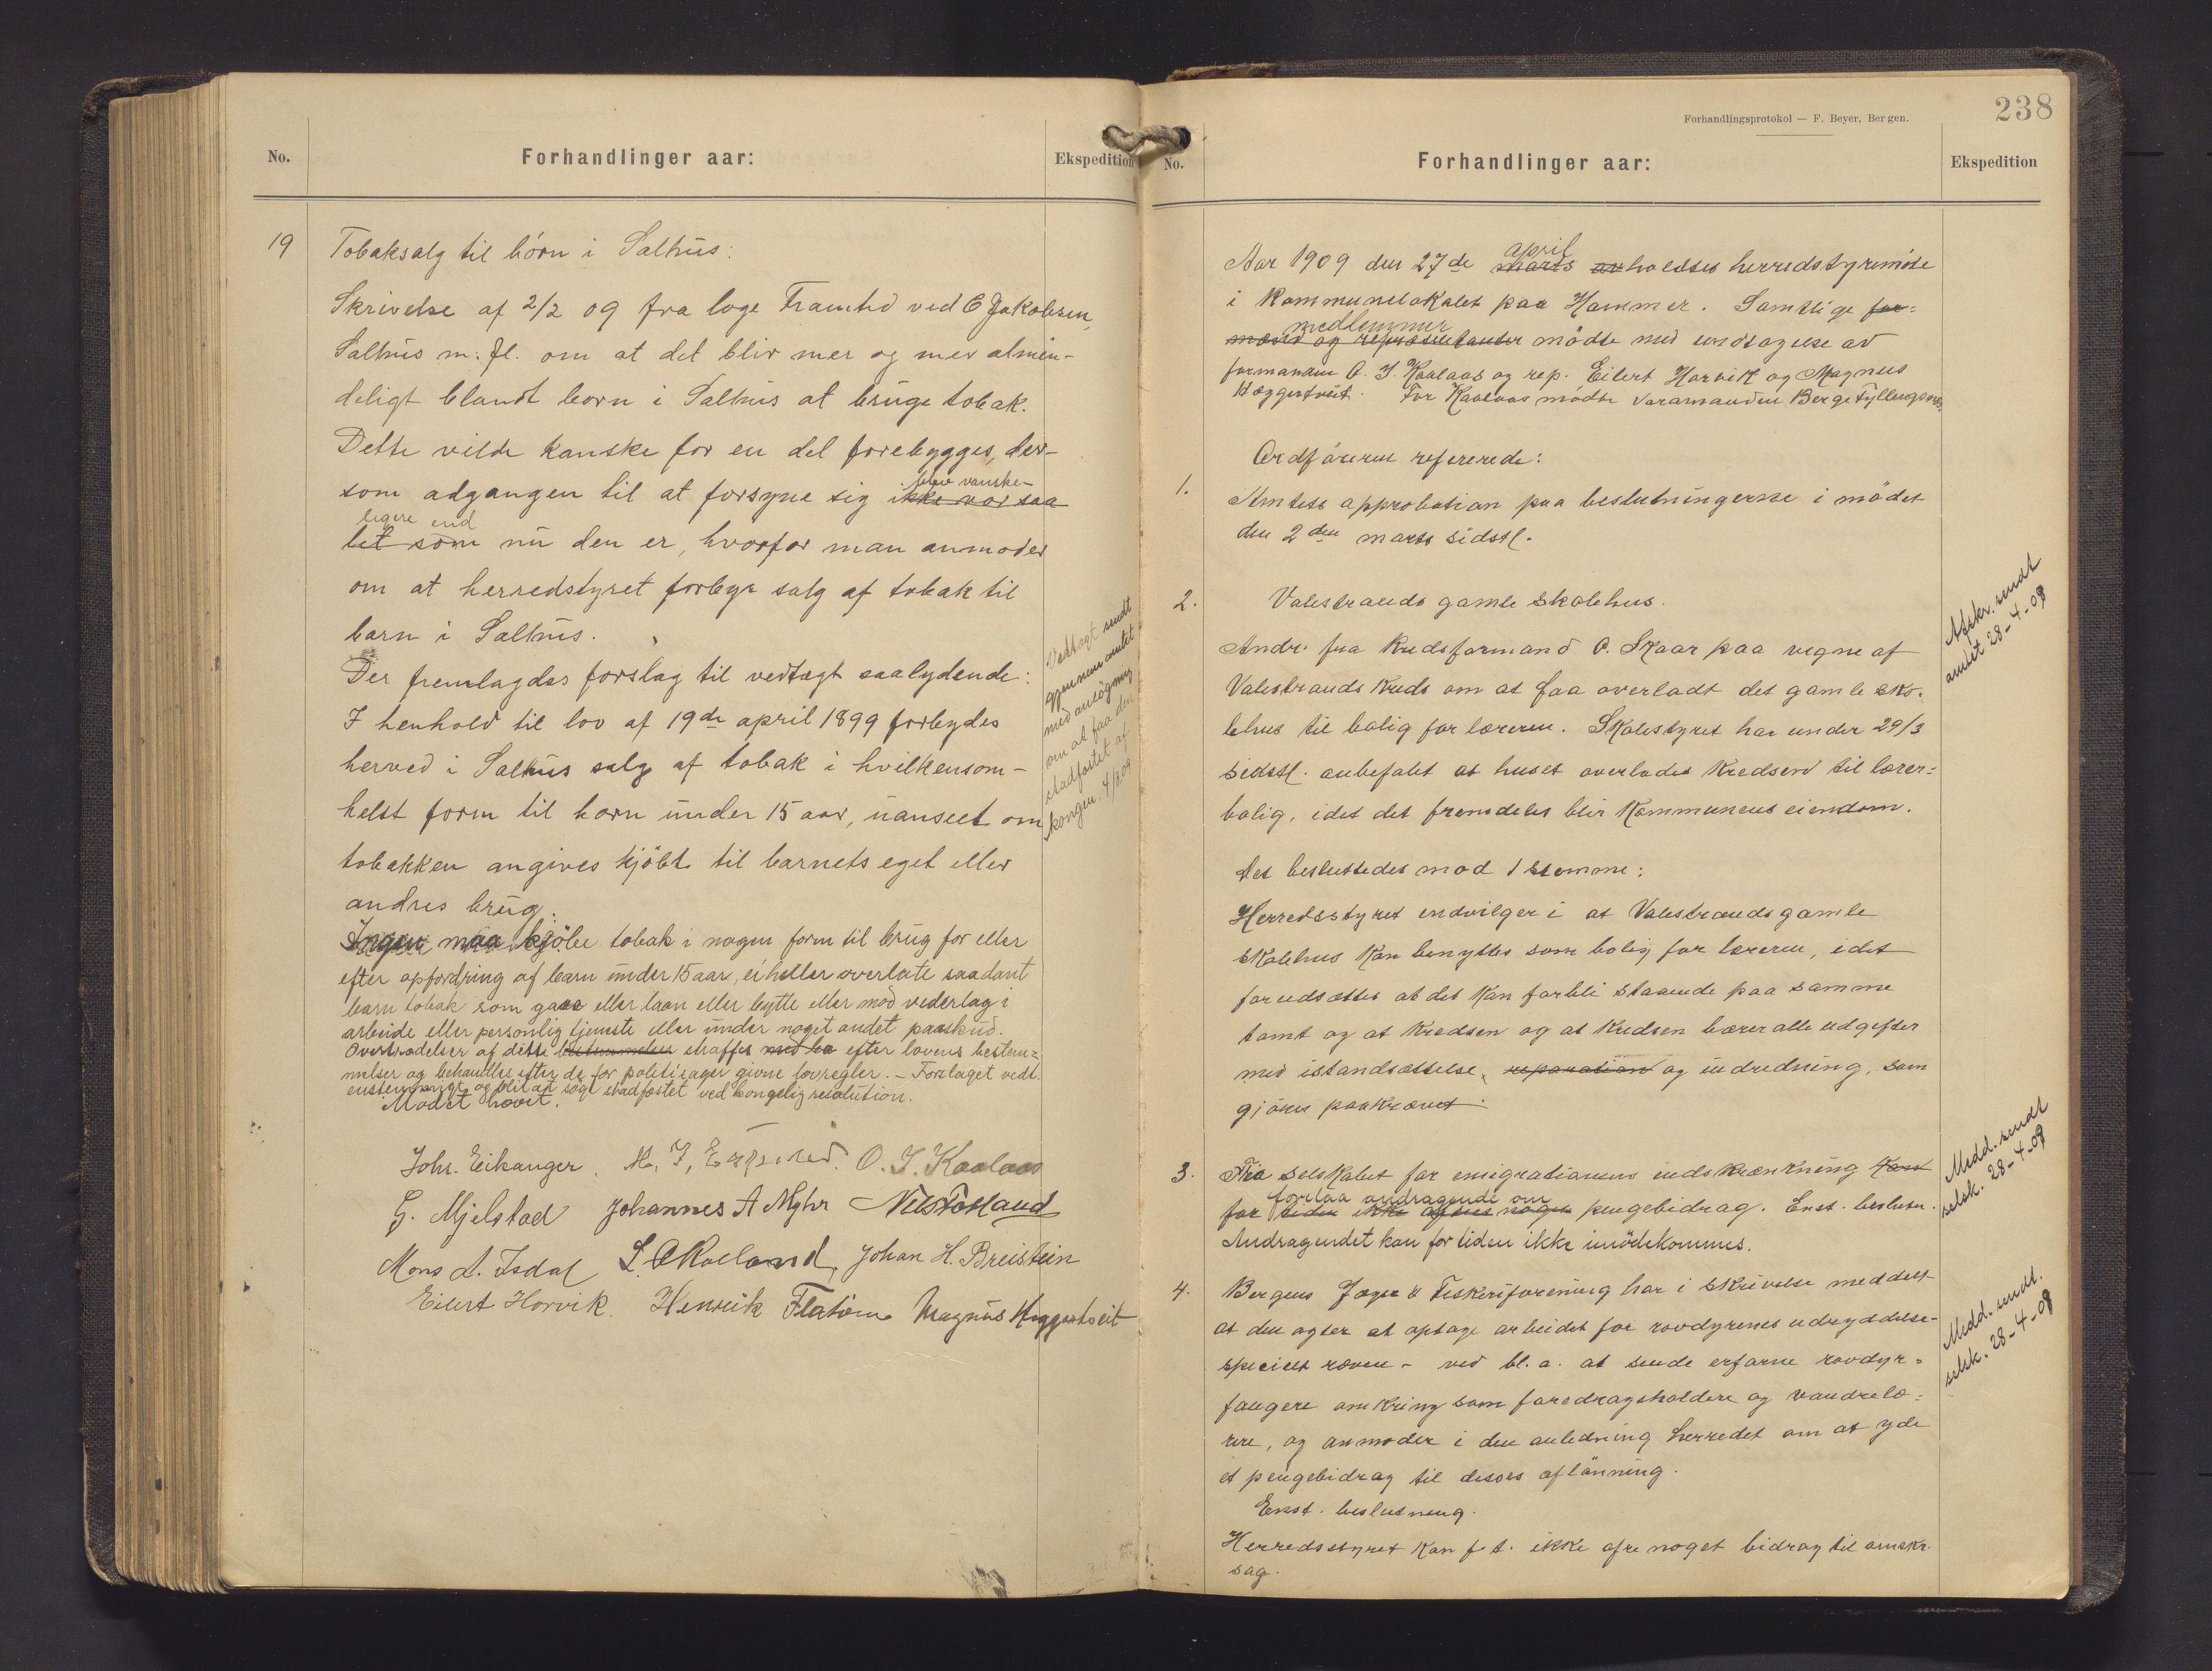 No.
Forhandlinger aar:
Ekspedition
19
Tobaksalg til börn i Salhus:
Skrivelse af 2/2 09 fra loge Framtid ved C Jakobsen,
Salhus m. fl. om at det blir mer og mer almin-
deligt blandt born i Salhus at bruge tobak.
Dette vilde kanske for en del forebygges, der-
blev vanske-
som adgangen til at forsyne sig ikke var saa
ligere end
let som nu den er, hvorfor man anmoder
om at herredstyret forbyr salg af tobak til
barn i Salhus.
Der fremlagdes forslag til vedtægt saalydende:
I henhold til lov af 19de april 1899 forbydes
herved i Salhus salg af tobak i hvilkensom-
helst form til barn under 15 aar, uanseet om
tobakken angives kjöbt til barnets eget eller
andres brug.
Ingen maa kjöbe tobak i nogen form til brug for eller
efter opfordring af barn under 15 aar, ei heller overlate saadant
barn tobak som gave eller laan eller bytte eller mod vederlag i
arbeide eller personlig tjeneste eller under noget andet paaskud.
Overtrædelser af dette bestemmelser straffes med bø efter lovens bestem-
melser og behandles efter de for politisager givne lovregler. – Forslaget vedt.
enstemmigt og blir at søge stadfæstet ved kongelig resolution.
Mødet hævet.
Vedtægt sendt
gjennem amtet
med ansögning
om at faa den
stadfæstet af
kongen. 4/3 09
Johs. Eikanger. M. J. O. J. Kaalaas
G. Mjelstad Johannes A Myhr Nils Tolland
Mons A. Isdal L. O Roeland, Johan H. Breistein
Eilert Horvik. Henrik Flatöen Magnus Heggertveit
238
Forhandlingsprotokol — F. Beyer, Bergen.
No.
Forhandlinger aar:
Ekspedition
april
Aar 1909 den 27de marts avholdtes herredstyremöte
i Kommunelokalet paa Hammer. Samtlige for-
medlemmer
mænd og repræsentanter mödte med undtagelse av
formanden O. J. Kaalaas og rep. Eilert Horvik og Magnus
Hæggertveit. For Kaalaas mödte varamanden Berge Fyllingsnes.
Ordföreren refererede:
1.
Amtets approbation paa beslutningerne i mödet
den 2den marts sidstl.
2.
Valestrands gamle skolehus.
Andr. fra Kredsformand O. Skaar paa vegne af
Valestrands Kreds om at faa overladt det gamle sko-
lehus til bolig for læreren. Skolestyret har under 29/3
sidstl. anbefalet at huset overlades Kredsen til lærer-
bolig, idet det fremdeles blir Kommunens eiendom.
Det besluttedes mod 1 stemme:
Herredsstyret indvilger i at Valestrands gamle
skolehus Kan benyttes som bolig for læreren, idet
forudsættes at det Kan forbli staaende paa samme
tomt og at Kredsen og at Kredsen bærer alle udgifter
med istandsættelse, reparation og indredning, som
gjöres paakrævet.
Afskr. sendt
amtet 28-4-09
3.
Fra selskabet for emigrationens indskrænkning kan
forelaa andragende om
for tiden ikke ofres nogen pengebidrag. Enst. beslutn.
Andragendet kan for tiden ikke imödekommes.
Medd. sendt
selsk. 28-4-09
4.
Bergens Jæger & Fiskeriforening har i skrivelse meddelt
at den agter at optage arbeidet for rovdyrenes udryddelse-
specielt ræven - ved bl. a. at sende erfarne rovdyr-
fangere omkring som foredragsholdere og vandrelæ-
rere, og anmoder i den anledning herredet om at yde
et pengebidrag til disses aflönning.
Enst. beslutning.
Herredsstyret Kan f. t. ikke ofre noget bidrag til omskr.
sag.
Medd. sendt.
selsk. 28-4-09